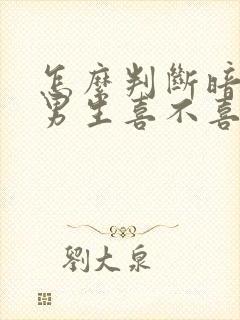 怎麼判斷暗
男生喜不喜
劉大泉